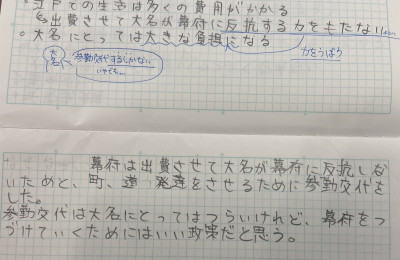 ・江戸での生活は多くの費用がかかる
↳出費させて大名が幕府に反抗する力をもたない
○大名にとっては大きな負担になる
力をうばう
大名
参勤交代するしかない
幕府は出費させて大名が幕府に反抗しな
いためと、町、道 発達をさせるために参勤交代を
した。
参勤交代は大名にとってはつらいけれど、幕府をつ
づけていくためにはいい政策だと思う。